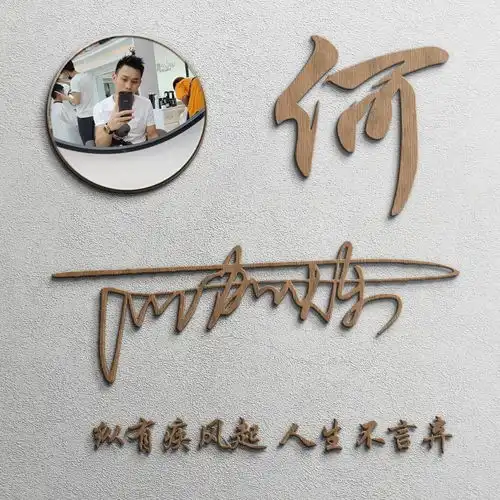 何
纵有疾风起 人生不言弃